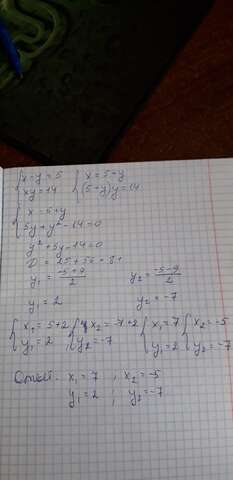 {x-y=5 {x=5+y
{xy=14 {(5+y)y=14
{x=5+y
{5y+y²-14=0
y²+5y-14=0
D=25+56=81
y₁=(-5+9)/2 y₂=(-5-9)/2
y₁=2 y₂=-7
{x₁=5+2 {x₂=-7+2 {x₁=7 {x₂=-5
{y₁=2 {y₂=-7 {y₁=2 {y₂=-7
Ответ: x₁=7 ; x₂=-5
y₁=2 ; y₂=-7